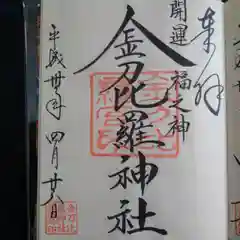 奉拝
開運
福之神
金刀比羅神社
平成卅年 四月廿八日